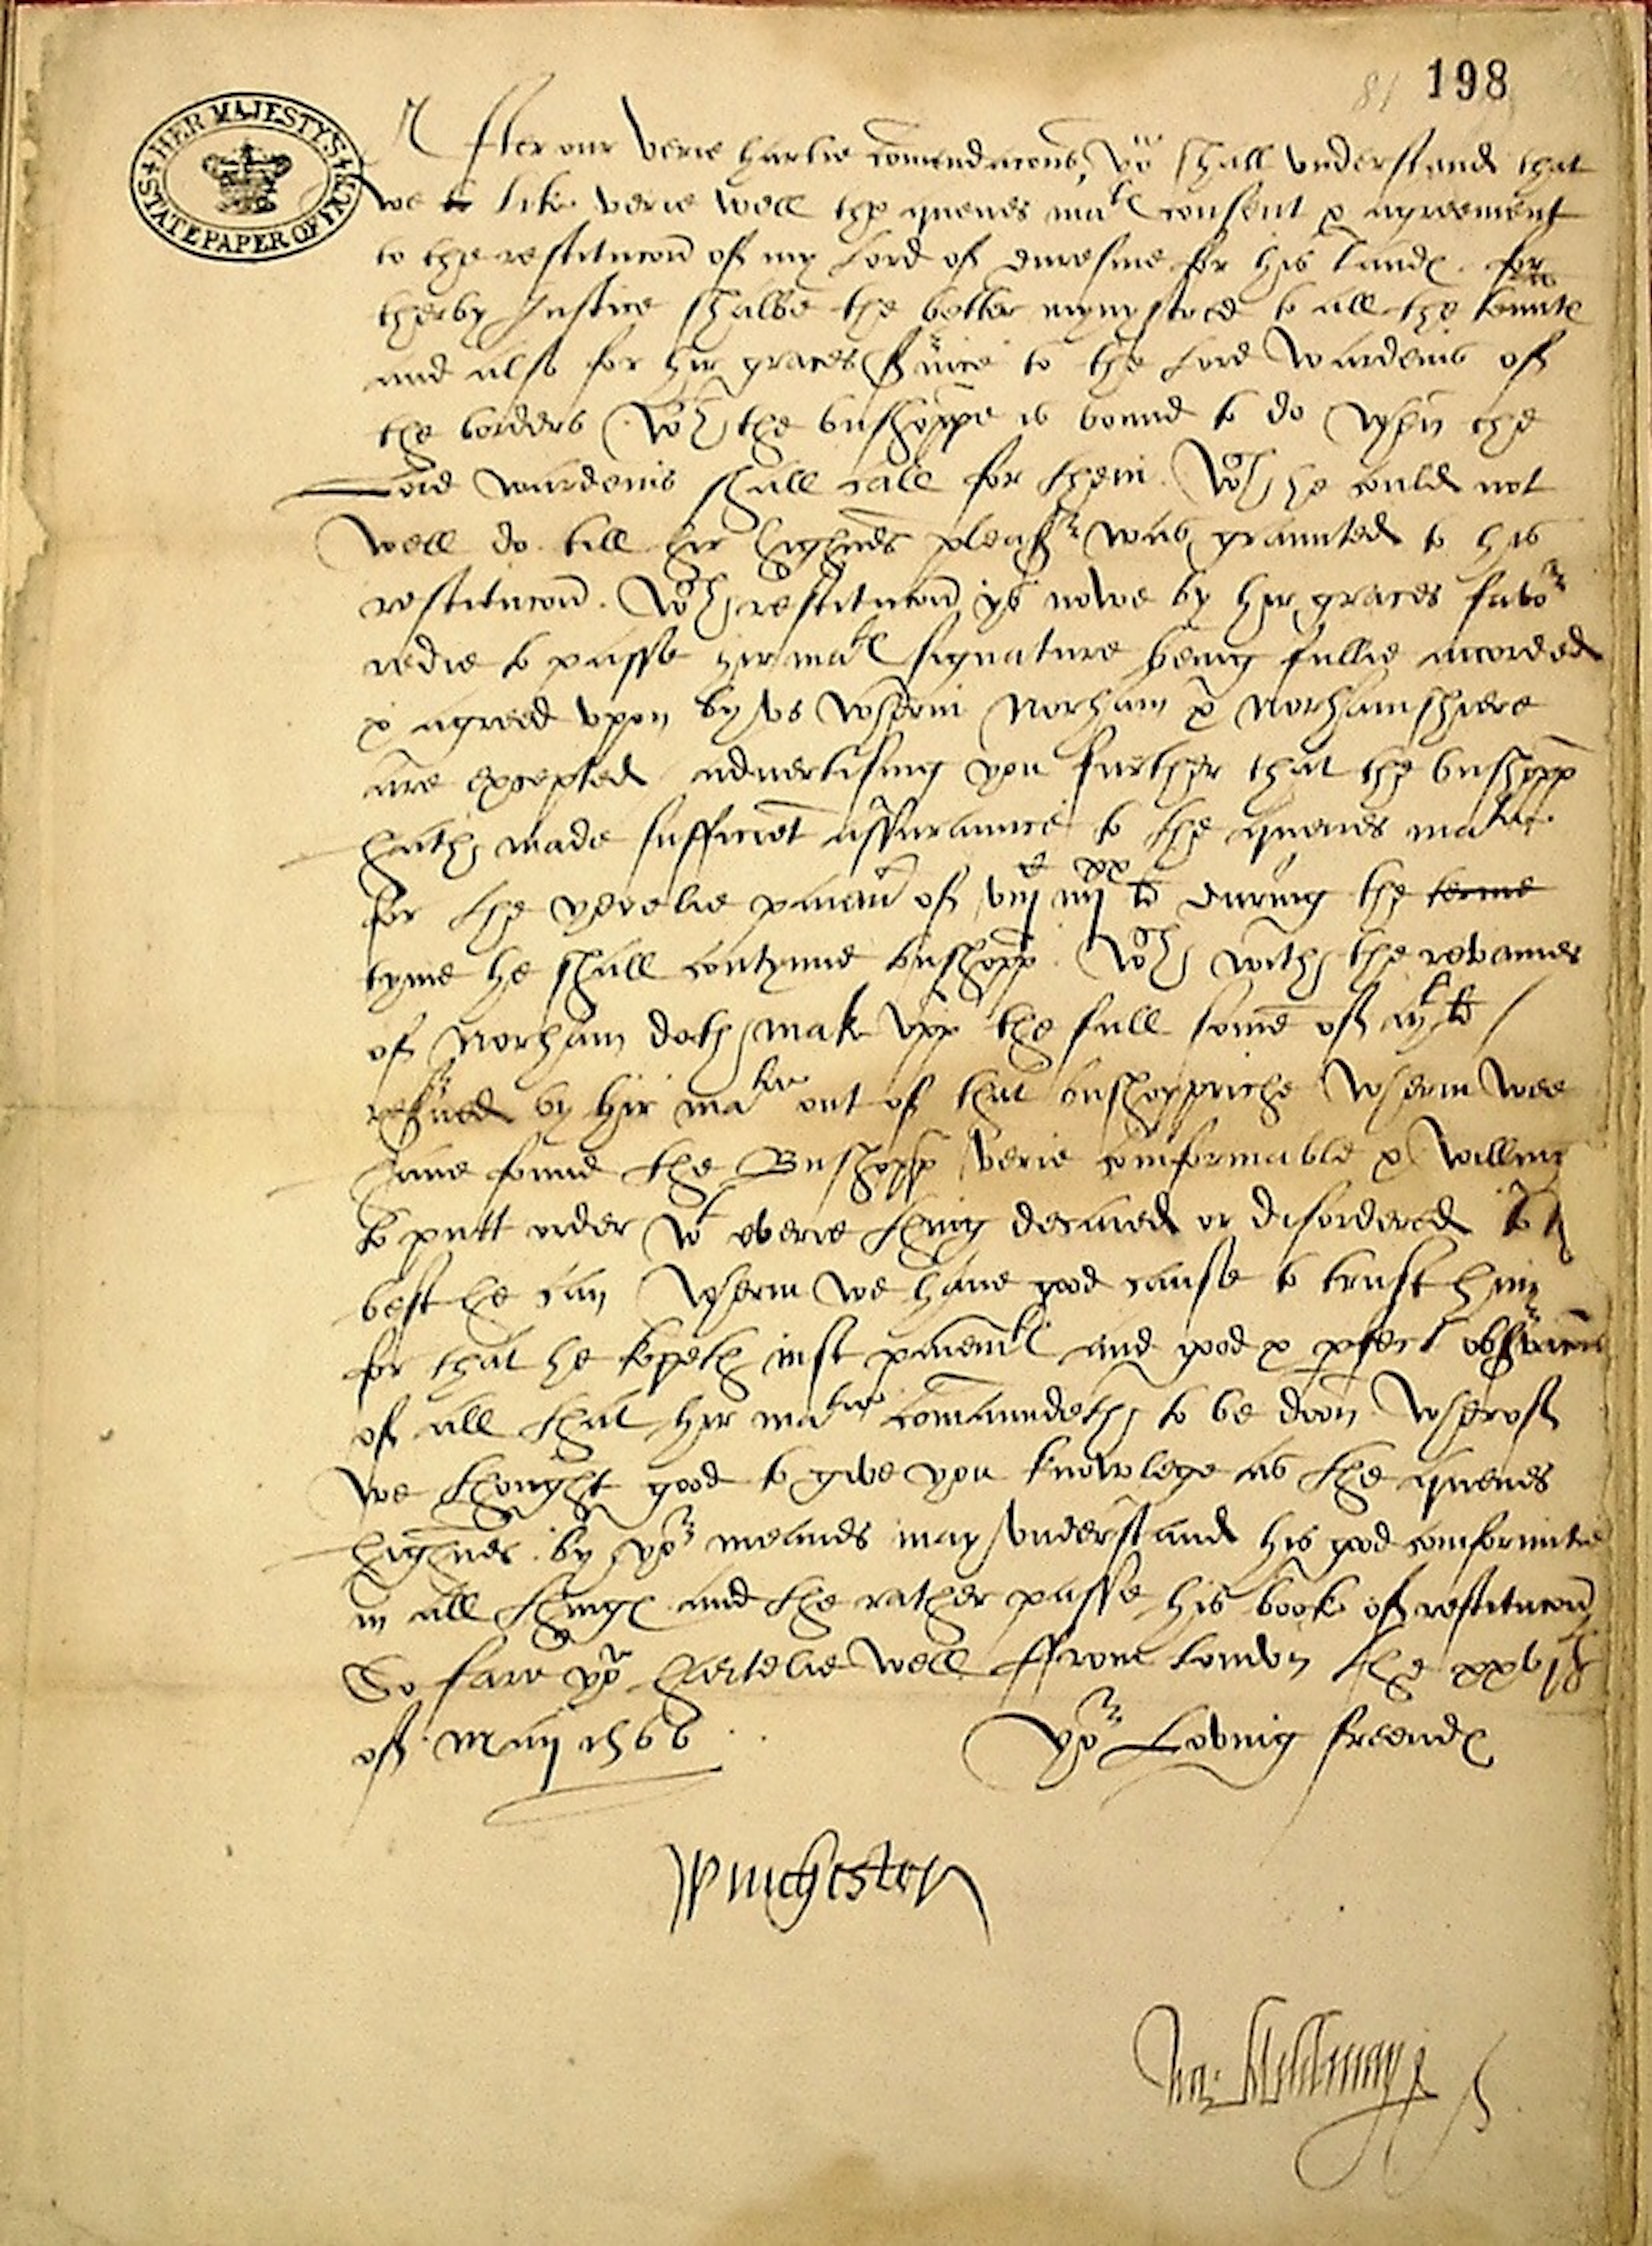 81 198
HER MAJESTY'S STATE PAPER OFFICE
After our verie hartie comendacons, yo shall understand that
we to like verie well the quenes matꝭ consent & agreement
to the restitucon of my Lord of duresme for his Landꝭ for
therby Justice shalbe the better mynystred to all the tenntꝭ
and also for hir graces svice to the Lord Wardenis of
the borders wch the busshoppe is bound to do when the
Lord wardenis shall call for them. wch he could not
well do till hir highnes pleasr was graunted to his
restitucon. wch restitucon ys nowe by hir graces favor
redie to passe hir matꝭ signature being fullie accorded
& agreed upon by us wherin Norham & Norhamshiere
are excepted advertising you further that the busshopp
hath made sufficiet assuraunce to the quenes matie
for the yerelie paiemt of viijc iiijxx li during the terme
tyme he shall contynue busshopp. wch with the revenues
of Norham doth mak upp the full some of mli li /
resved by hir matie out of that busshoppriche wherin wee
have found the Busshopp verie comformable & willing
to putt order wt everie thing decaied or disordered to
best he can wherin we have good cause to trust him
for that he kepeth iust paiemtꝭ and good & pfect obsvacon
of all that hir matie comaundeth to be doon wherof
we thought good to give you knowlege as the quenes
highnes by yor meands may understand his good comformitie
in all thingꝭ and the rather passe his book of restitucon
So fare yo hartelie well ffrom London the xxvjth
of Maij 1566 yor Loving freendꝭ
Winchester
Wa: Mildmay